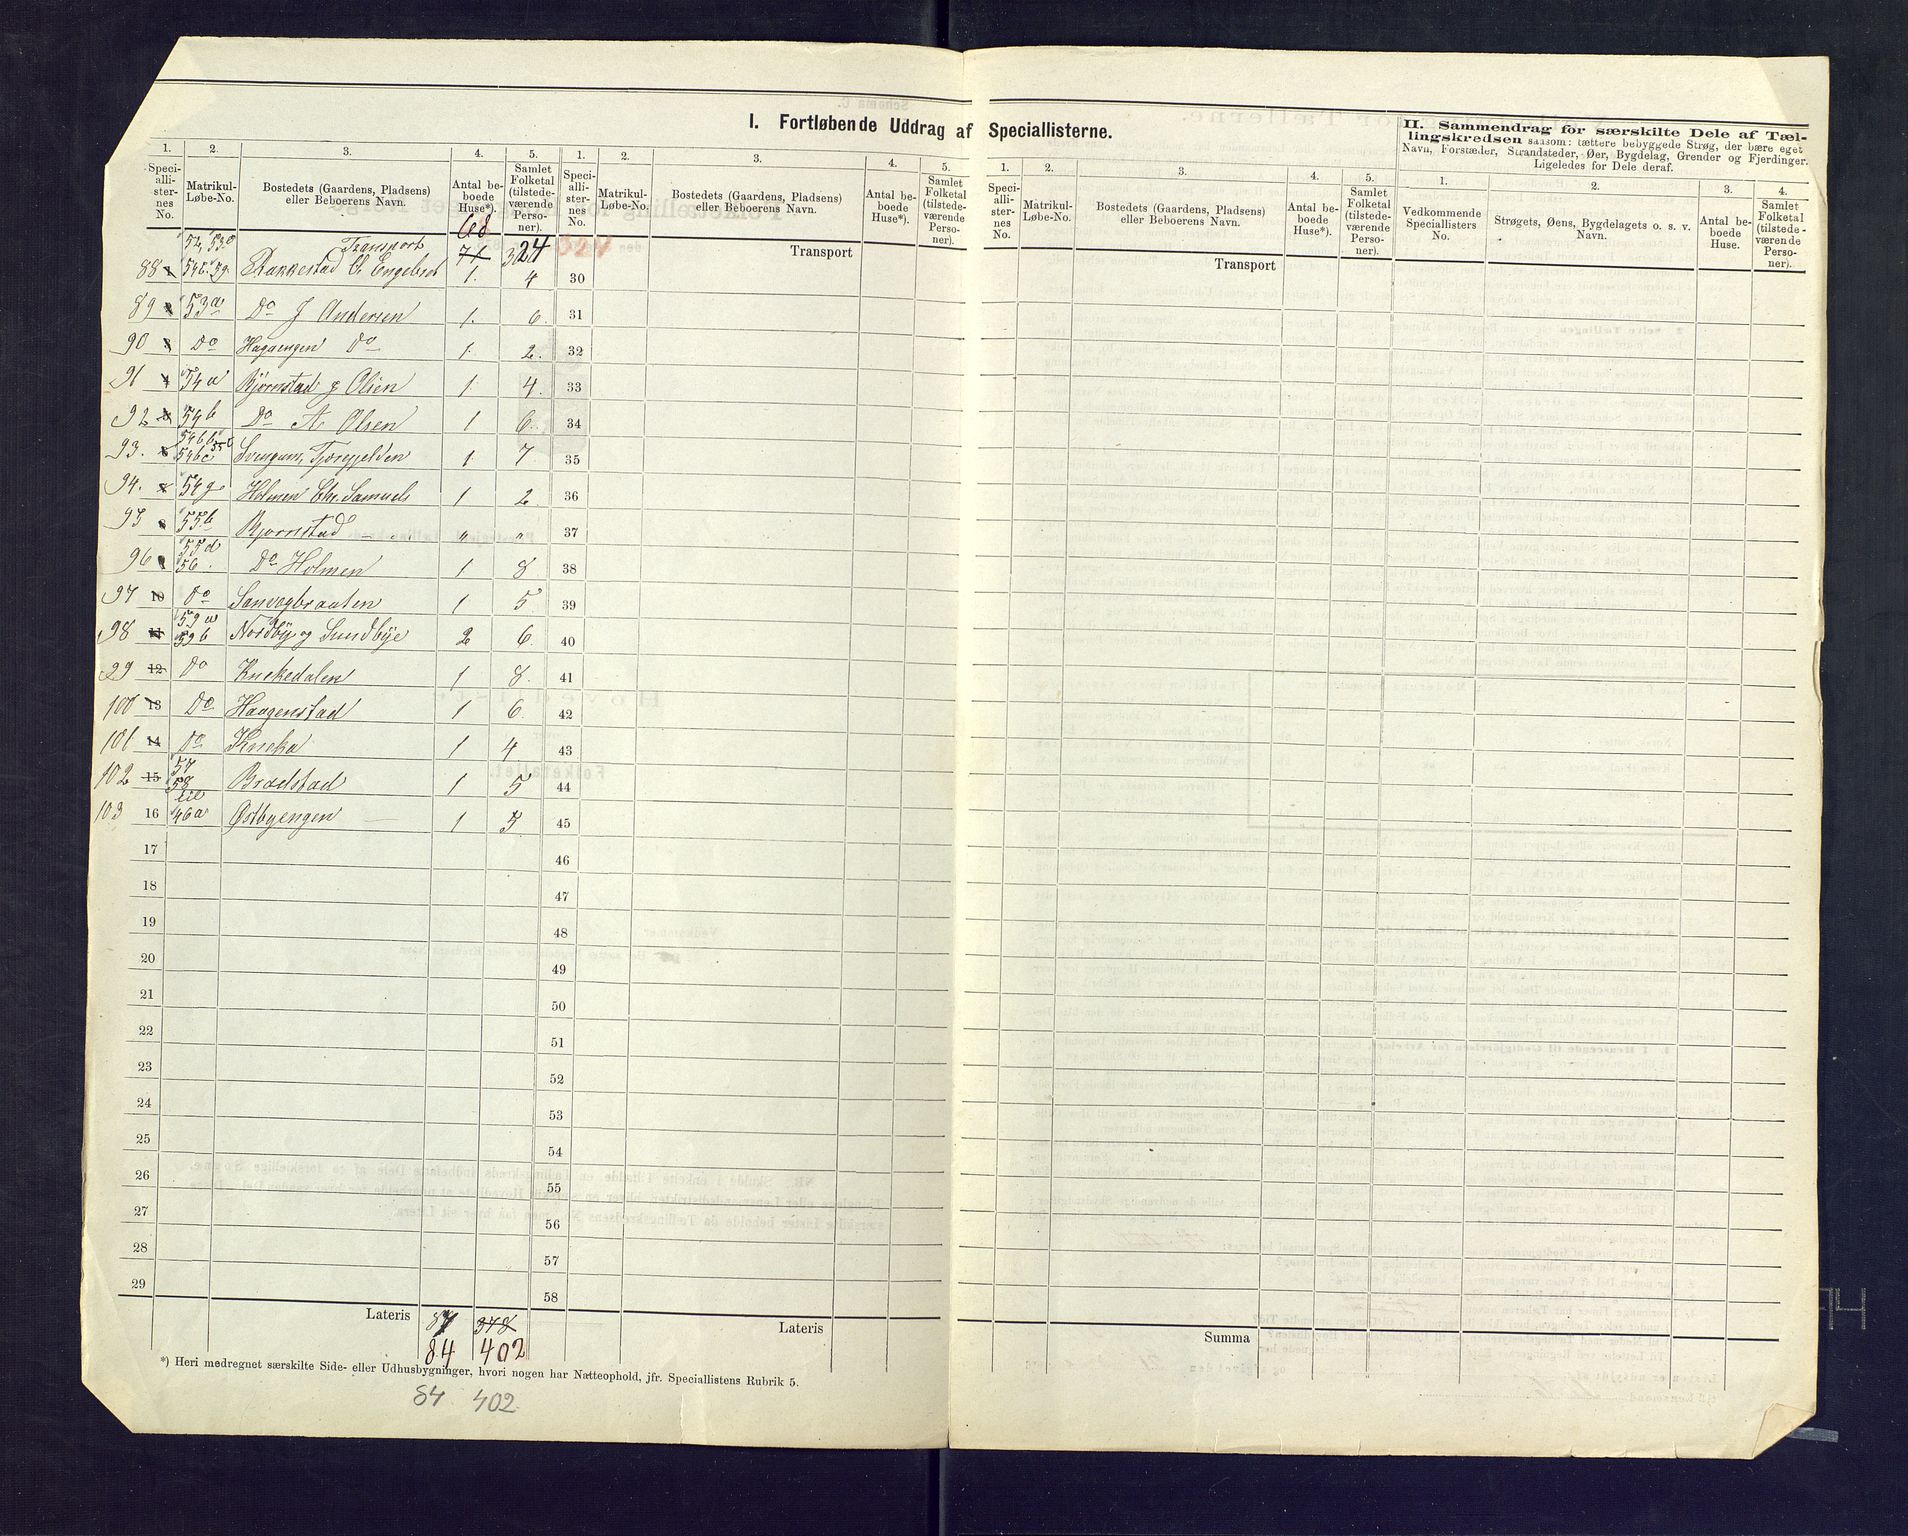 I. Fortløbende Uddrag af Speciallisterne.
1. 2. 3. 4. 5.
Speciallisternes No. Matrikul-Løbe-No. Bostedets (Gaardens, Pladsens) eller Beboerens Navn. Antal beboede Huse*). Samlet Folketal (tilstedeværende Personer).
Transport 68 324
88 52, 54c. Rakkestad Ch Engebret 1. 4
89 53a Do J Andersen 1. 6.
90 Do Hagaengen Do 1. 2.
91 54a Bjørnstad g Olsen 1. 4.
92 54b Do A. Olsen 1 6.
93. Svengum, Tjorefjelden 1 7
94. 54g Holmen Chr. Samuels 1 2.
95 55b Bjornstad — „ „
96 55d 56. Do Holmen 1 8
97 10 Do Sanvogbraaten 1 5.
98 11 59a 59b Nordby og Sundbye 2 6.
99 12 Do Knekedalen 1 8.
100 13 Do Haagenstad 1 6.
101 14 Do Kneka 1 4
102 15 57 58 Bradstad 1 5
103 16 46a Østbyengen — 1 5.
17
18
19
20
21
22
23
24
25
26
27
28
29
Lateris 87 378
84 402
*) Heri medregnet særskilte Side- eller Udhusbygninger, hvori nogen har Natteophold, jfr. Speciallistens Rubrik 5.
84 402
1. 2. 3. 4. 5.
Speciallisternes No. Matrikul-Løbe-No. Bostedets (Gaardens, Pladsens) eller Beboerens Navn. Antal beboede Huse*). Samlet Folketal (tilstedeværende Personer).
Transport
30
31
32
33
34
35
36
37
38
39
40
41
42
43
44
45
46
47
48
49
50
51
52
53
54
55
56
57
58
Lateris
1. 2. 3. 4. 5.
Speciallisternes No. Matrikul-Løbe-No. Bostedets (Gaardens, Pladsens) eller Beboerens Navn. Antal beboede Huse*). Samlet Folketal (tilstedeværende Personer).
Transport
Summa
II. Sammendrag for særskilte Dele af Tællingskredsen saasom: tættere bebyggede Strøg, der bære eget Navn, Forstæder, Strandsteder, Øer, Bygdelag, Grender og Fjerdinger. Ligeledes for Dele deraf.
1. 2. 3. 4.
Vedkommende Speciallisters No. Strøgets, Øens, Bygdelagets o. s. v. Navn. Antal beboede Huse. Samlet Folketal (tilstedeværende Personer).